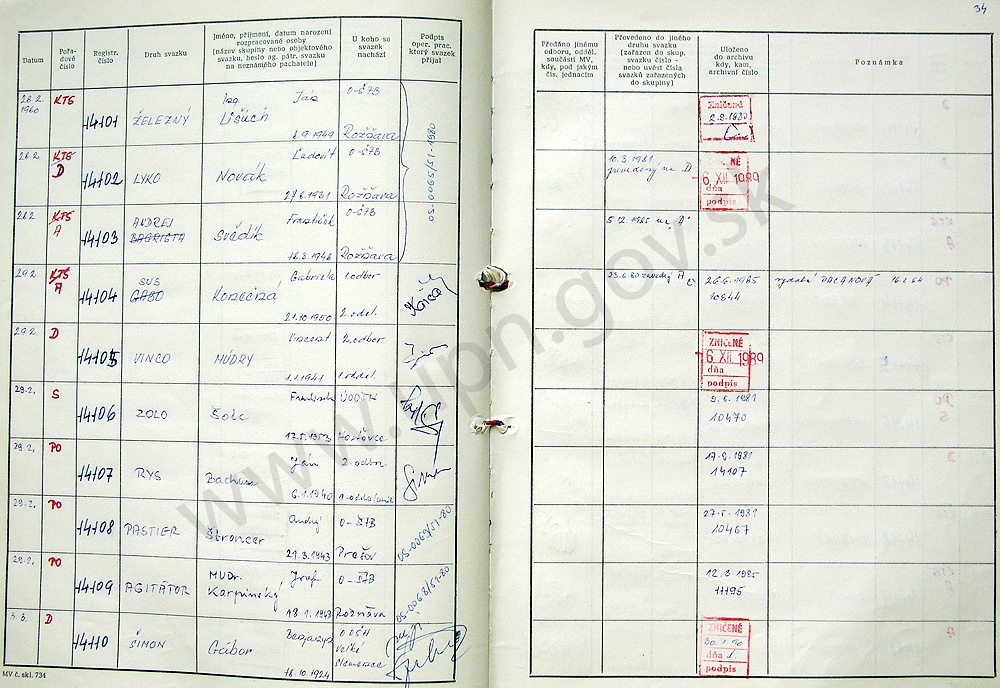 34
Datum
Pořadové číslo
Registr. číslo
Druh svazku
Jméno, příjmení, datum narození rozpracované osoby (název skupiny nebo objektového svazku, heslo ag. pátr. svazku na neznámého pachatele)
U koho se svazek nachází
Podpis oper. prac. který svazek přijal
Předáno jinému odboru, odděl. součásti MV, kdy, pod jakým čís. jednacím
Převedeno do jiného druhu svazku (zařazen do skup. svazku číslo - nebo uvést čísla svazků zařazených do skupiny)
Uloženo do archivu kdy, kam, archivní číslo
Poznámka
28.2. 1980 KTS 14101 ŽELEZNÝ Ing Ján Lišúch 8.9.1949 O-ŠTB Rožňava
OS-0065/51-1980
Zničené 2.9.1980
28.2. KTS D 14102 LYKO Ľudovít Novák 27.6.1931 O-ŠTB Rožňava
10.3.1981 prevedený na D
ZNIČENÉ 6. XII. 1989 dňa podpis
28.2. KTS A 14103 ANDREJ BAGRISTA František Svědík 16.3.1948 O-ŠTB Rožňava
5.12.1985 na "A"
29.2. KTS A 14104 SUS GABO Gabriela Konečná 21.10.1950 1.odbor 2.odel.
23.6.80 zavedený A
26.6.1985 10844
vydatá PACANOVÁ
29.2. D 14105 VINCO Vincent MÚDRY 1.1.1941 2.odbor 1.oddel.
ZNIČENÉ 6. XII. 1989 dňa podpis
29.2. S 14106 ZOLO František Šolc 17.5.1953
9.6.1981 10470
29.2. PO 14107 RYS Ján 6.1.1940 2.odbor
17.9.1981 14107
29.2. PO 14108 PASTIER Štroncer 21.3.1943 O-ŠTB Prešov
OS-0069/51-80
27.5.1981 10467
29.2. PO 14109 AGITÁTOR MUDr. Jozef Karpinský 18.1.1943 O-ŠTB Rožňava
OS-0068/51-80
12.3.1985 11195
5.3. D 14110 ŠIMON Gábor 18.10.1924 OOŠH Veľké Slemence
ZNIČENÉ 30.1.90 dňa podpis
MV č. skl. 734
www.upn.gov.sk